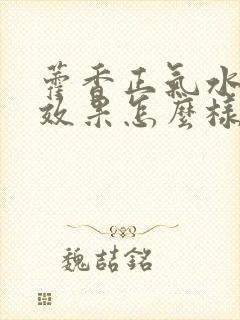 藿香正氣水
效果怎麼樣
魏喆銘